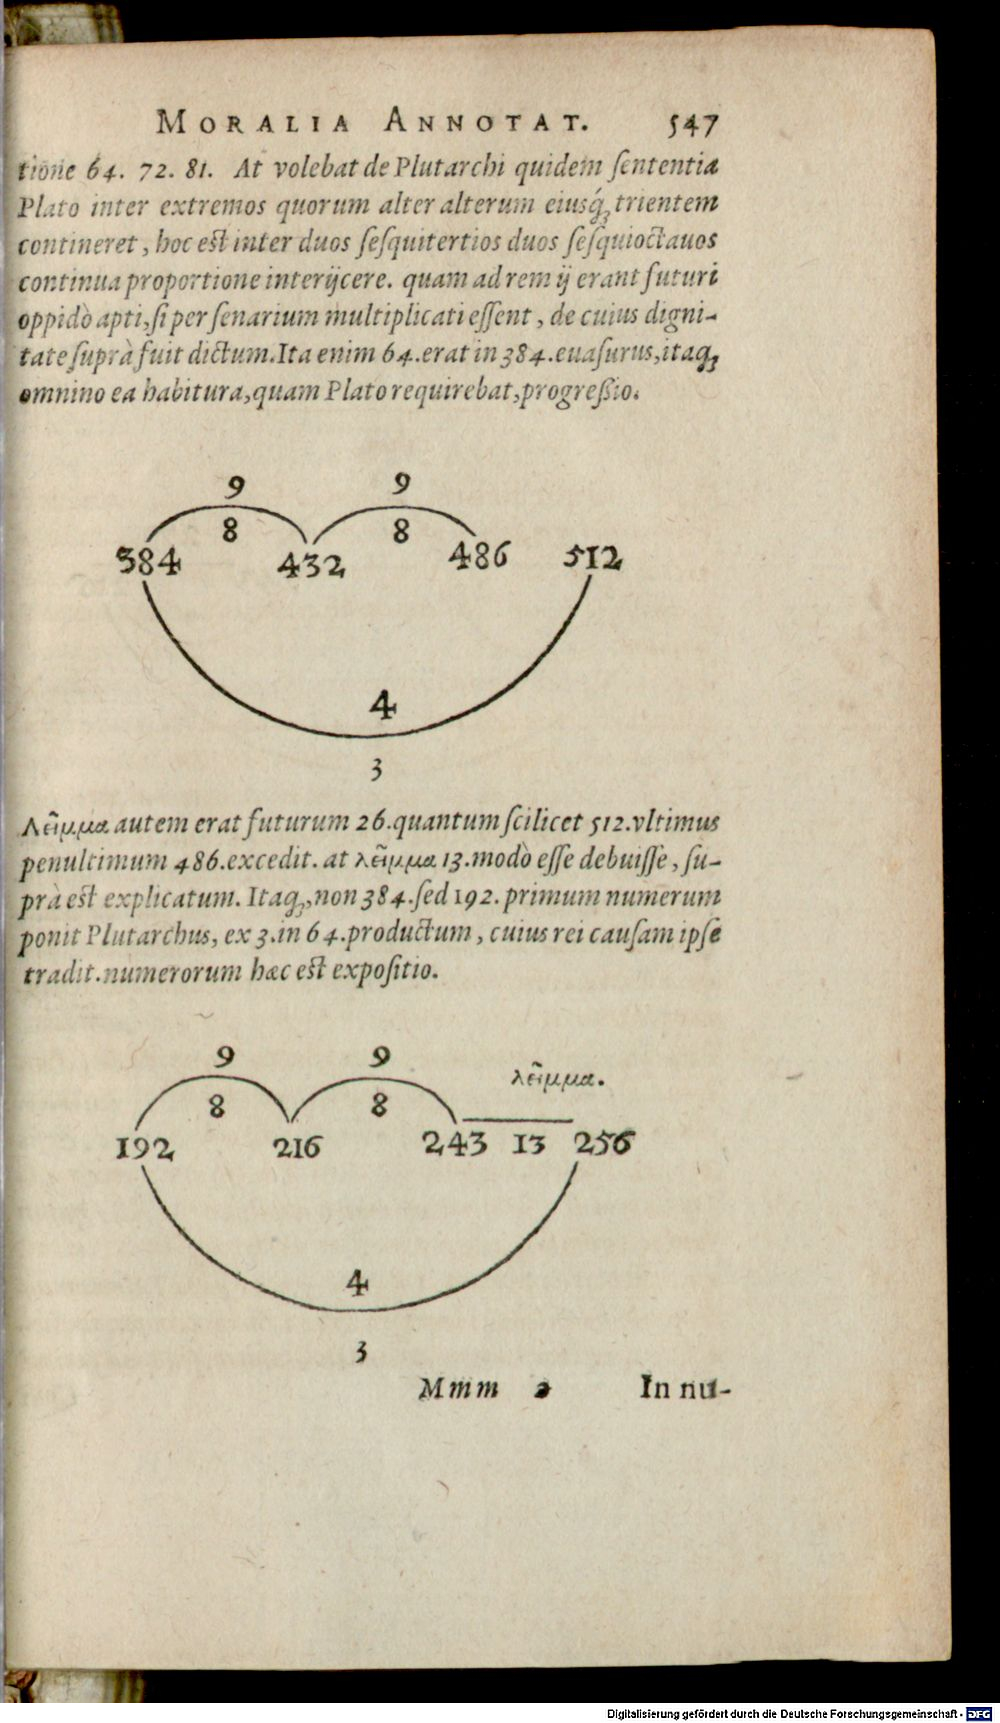 MORALIA ANNOTAT. 547
tione 64. 72. 81. At volebat de Plutarchi quidem ſententia
Plato inter extremos quorum alter alterum eiusq́; trientem
contineret, hoc est inter duos ſeſquitertios duos ſeſquioctauos
continua proportione interijcere. quam ad rem ij erant futuri
oppidò apti, ſi per ſenarium multiplicati eſſent, de cuius digni-
tate ſuprà fuit dictum. Ita enim 64. erat in 384. euaſurus, itaq;
omnino ea habitura, quam Plato requirebat, progreßio.
9 9
8 8
384 432 486 512
4
3
Λεῖμμα autem erat futurum 26. quantum ſcilicet 512. vltimus
penultimum 486. excedit. at λεῖμμα 13. modò eſſe debuiſſe, ſu-
prà est explicatum. Itaq;, non 384. ſed 192. primum numerum
ponit Plutarchus, ex 3. in 64. productum, cuius rei cauſam ipſe
tradit. numerorum hæc est expoſitio.
9 9 λεῖμμα.
8 8
192 216 243 13 256
4
3
Mmm 2 In nu-
Digitalisierung gefördert durch die Deutsche Forschungsgemeinschaft - DFG